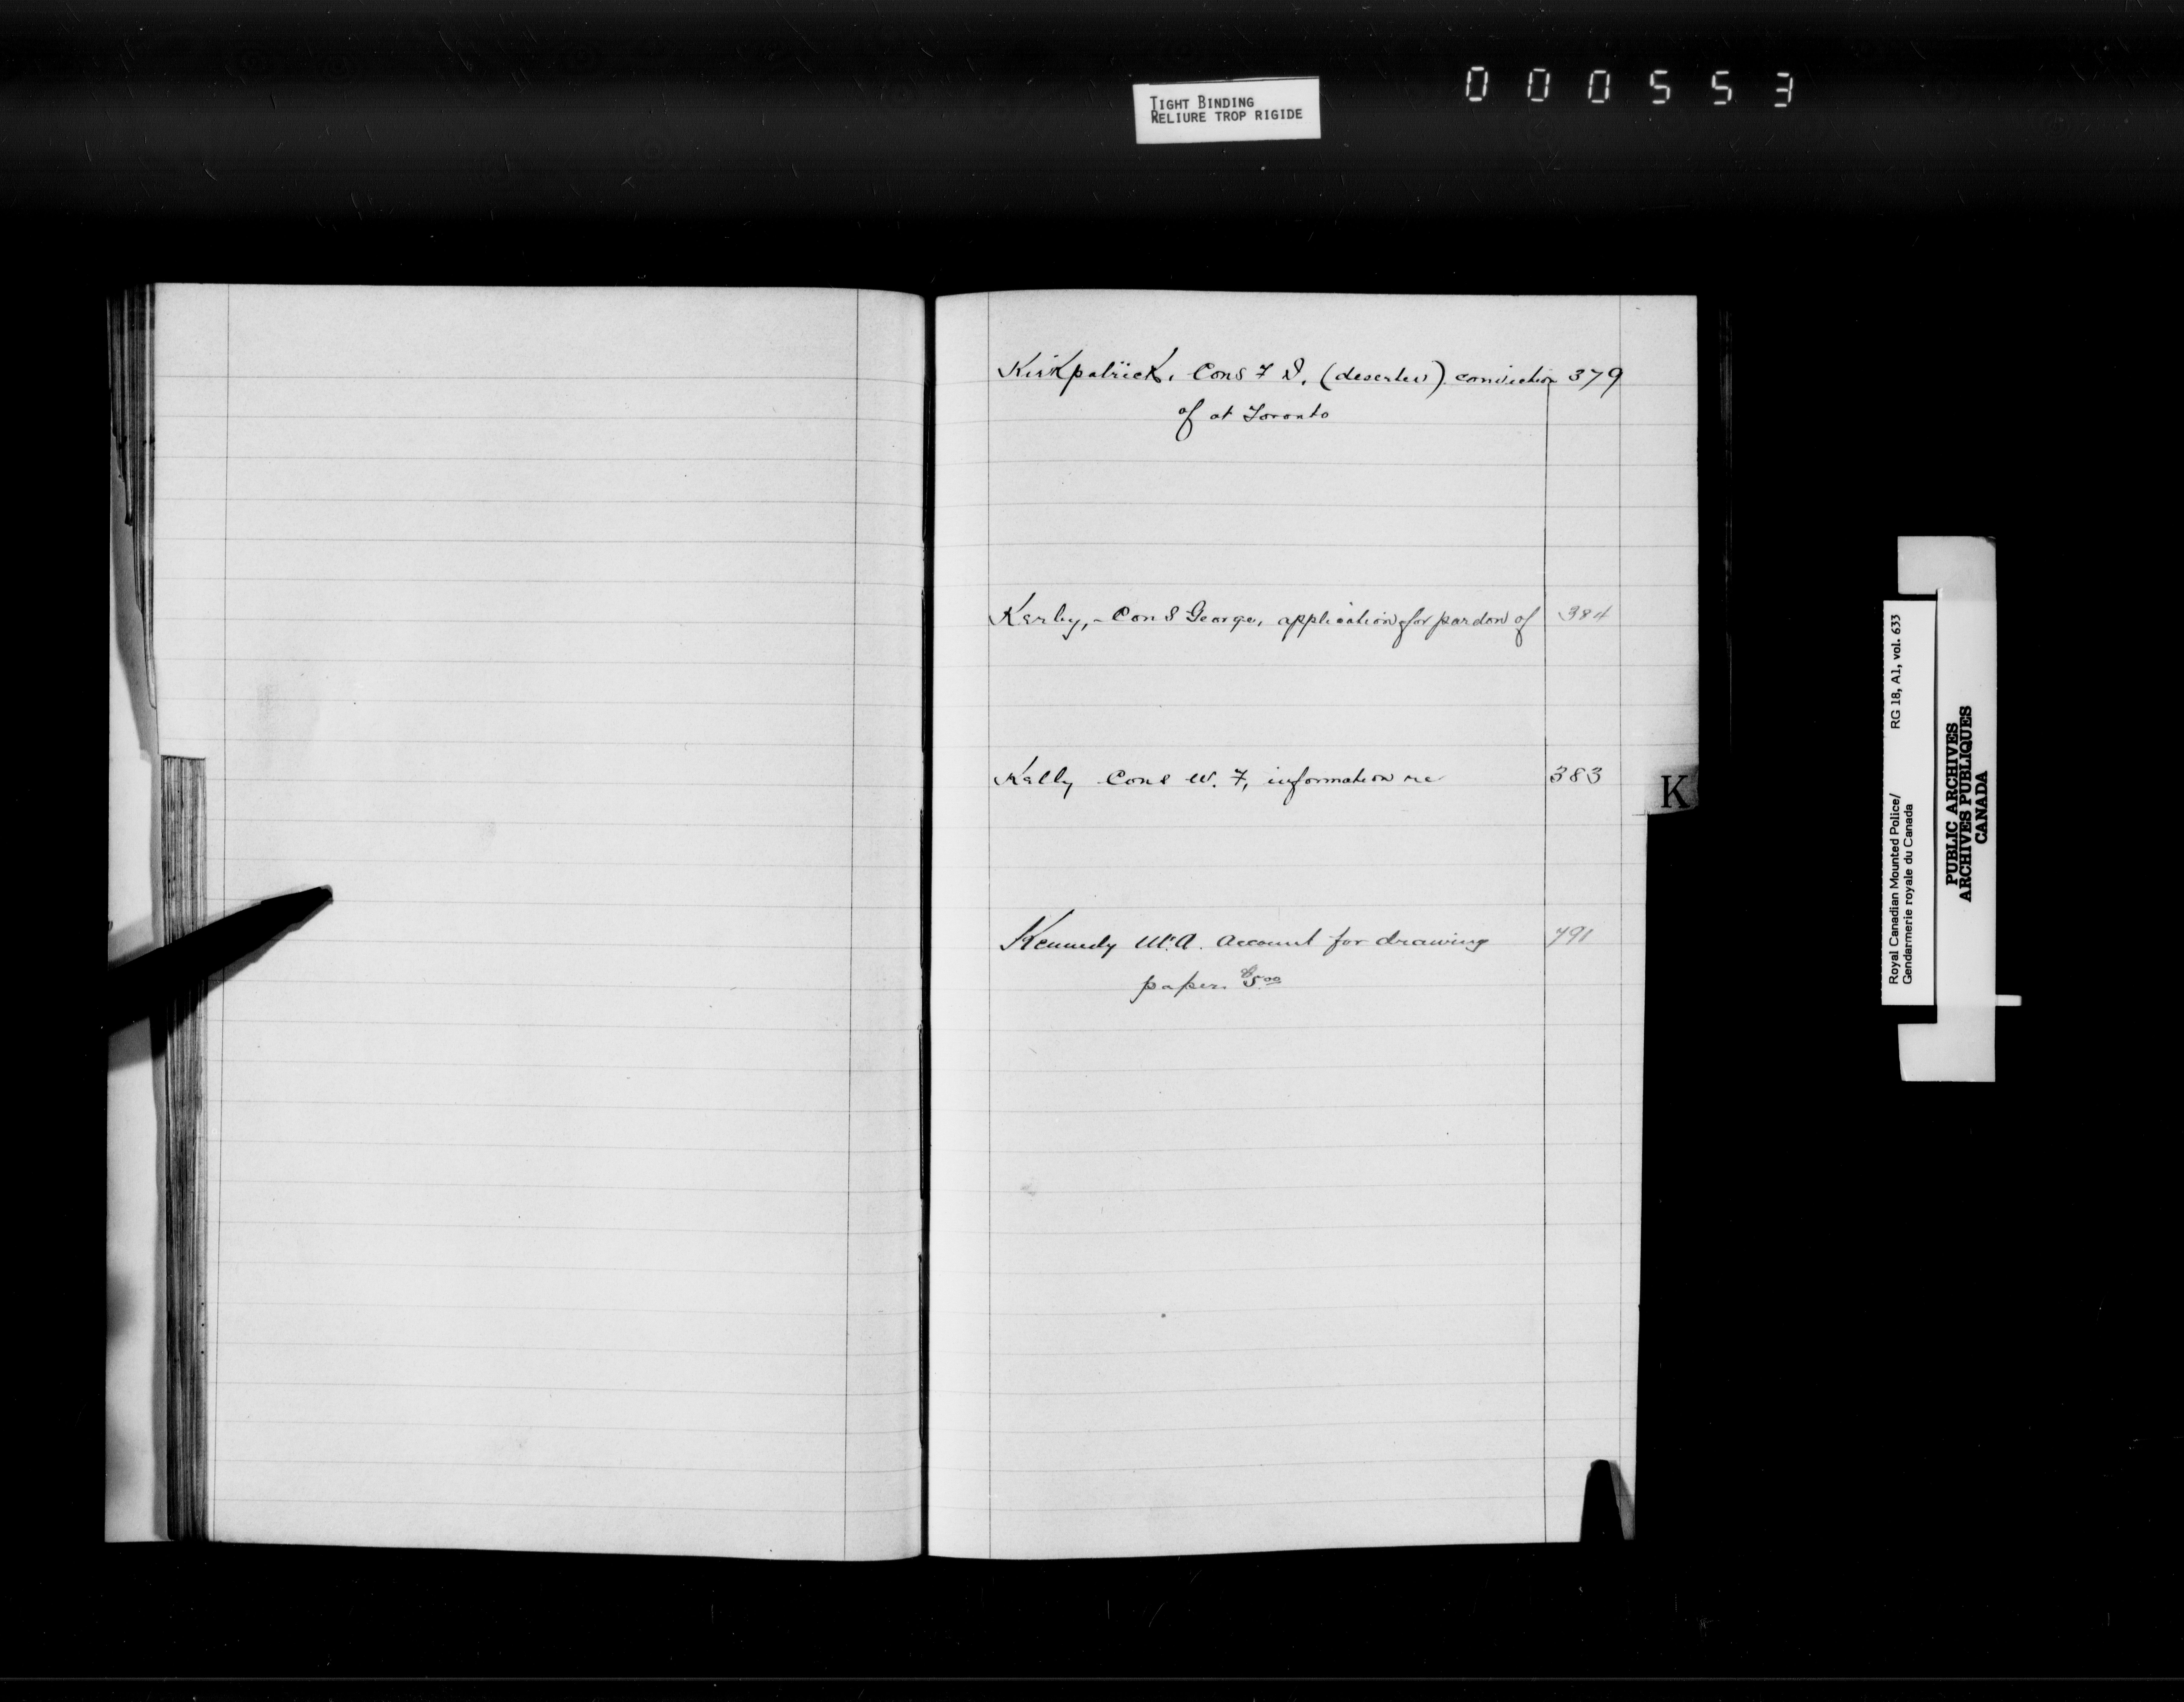 TIGHT BINDING
RELIURE TROP RIGIDE
000553
Kirkpatrick, Cons F S. (deserter) conviction 379
of at Toronto
Kerby, - Cons George, application for pardon of 384
Kelly Cons W. F, information re 383
K
Kennedy W. A. Account for drawing 491
paper $5.00
Royal Canadian Mounted Police/ RG 18, A1, vol. 633
Gendarmerie royale du Canada
PUBLIC ARCHIVES
ARCHIVES PUBLIQUES
CANADA